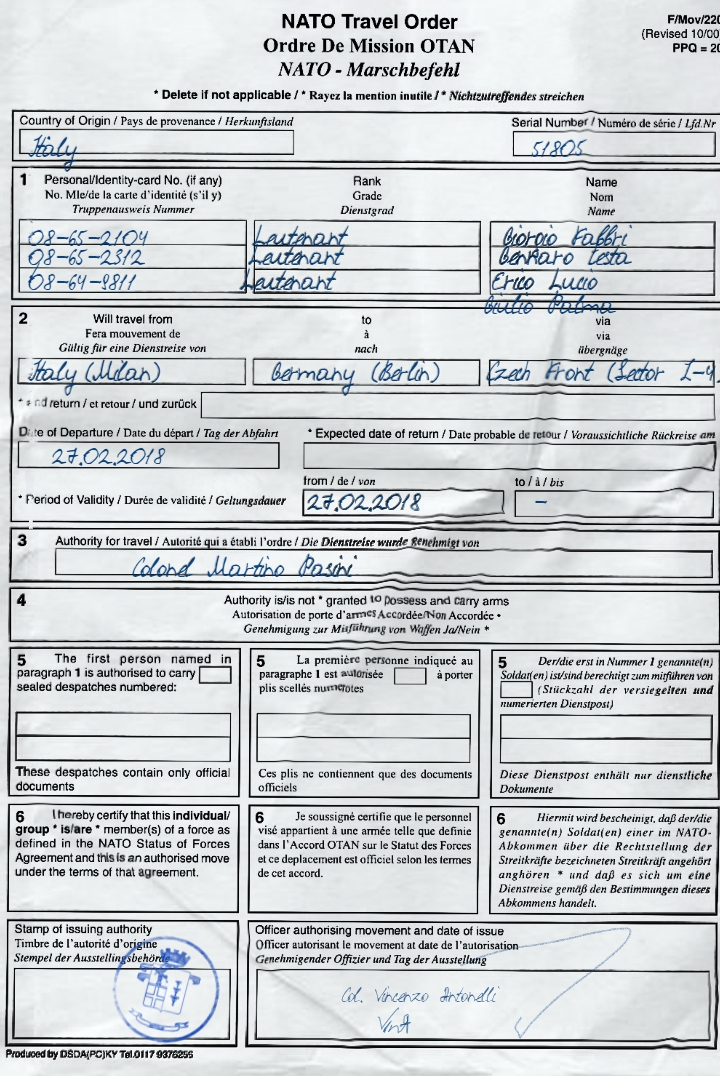 NATO Travel Order
Ordre De Mission OTAN
NATO - Marschbefehl
F/Mov/220
(Revised 10/00
PPQ = 20
* Delete if not applicable / * Rayez la mention inutile / * Nichtzutreffendes streichen
Country of Origin / Pays de provenance / Herkunftsland
Serial Number / Numéro de série / Lfd.Nr
Italy
51805
1 Personal/Identity-card No. (if any) Rank Name
No. Mle/de la carte d'identité (s'il y) Grade Nom
Truppenausweis Nummer Dienstgrad Name
08-65-2104 Leutenant Giorgio Fabbri
08-65-2312 Leutenant Gennaro Testa
08-64-9811 Leutenant Erico Lucio
Giulio Palma
2 Will travel from to via
Fera mouvement de à via
Gültig für eine Dienstreise von nach übergnäge
Italy (Milan) Germany (Berlin) Czech Front (Sector I-4)
return / et retour / und zurück
Date of Departure / Date du départ / Tag der Abfahrt
* Expected date of return / Date probable de retour / Voraussichtliche Rückreise am
27.02.2018
from / de / von to / à / bis
* Period of Validity / Durée de validité / Geltungsdauer 27.02.2018 –
3 Authority for travel / Autorité qui a établi l'ordre / Die Dienstreise wurde genehmigt von
Colonel Martino Pasini
4 Authority is/is not * granted to possess and carry arms
Autorisation de porte d'armes Accordée/Non Accordée *
Genehmigung zur Mitführung von Waffen Ja/Nein *
5 The first person named in
paragraph 1 is authorised to carry
sealed despatches numbered:
These despatches contain only official
documents
5 La première personne indiqué au
paragraphe 1 est autorisée à porter
plis scellés numérotes
Ces plis ne contiennent que des documents
officiels
5 Der/die erst in Nummer 1 genannte(n)
Soldat(en) ist/sind berechtigt zum mitführen von
(Stückzahl der versiegelten und
numerierten Dienstpost)
Diese Dienstpost enthält nur dienstliche
Dokumente
6 I hereby certify that this individual/
group * is/are * member(s) of a force as
defined in the NATO Status of Forces
Agreement and this is an authorised move
under the terms of that agreement.
6 Je soussigné certifie que le personnel
visé appartient à une armée telle que definie
dans l'Accord OTAN sur le Statut des Forces
et ce deplacement est officiel selon les termes
de cet accord.
6 Hiermit wird bescheinigt, daß der/die
genannte(n) Soldat(en) einer im NATO-
Abkommen über die Rechtstellung der
Streitkräfte bezeichneten Streitkräft angehört
anghören * und daß es sich um eine
Dienstreise gemäß den Bestimmungen dieses
Abkommens handelt.
Stamp of issuing authority
Timbre de l'autorité d'origine
Stempel der Ausstellingsbehörde
Officer authorising movement and date of issue
Officer autorisant le movement at date de l'autorisation
Genehmigender Offizier und Tag der Ausstellung
Col. Vincenzo Antonelli
Produced by DSDA(PC)KY Tel.0117 9376256